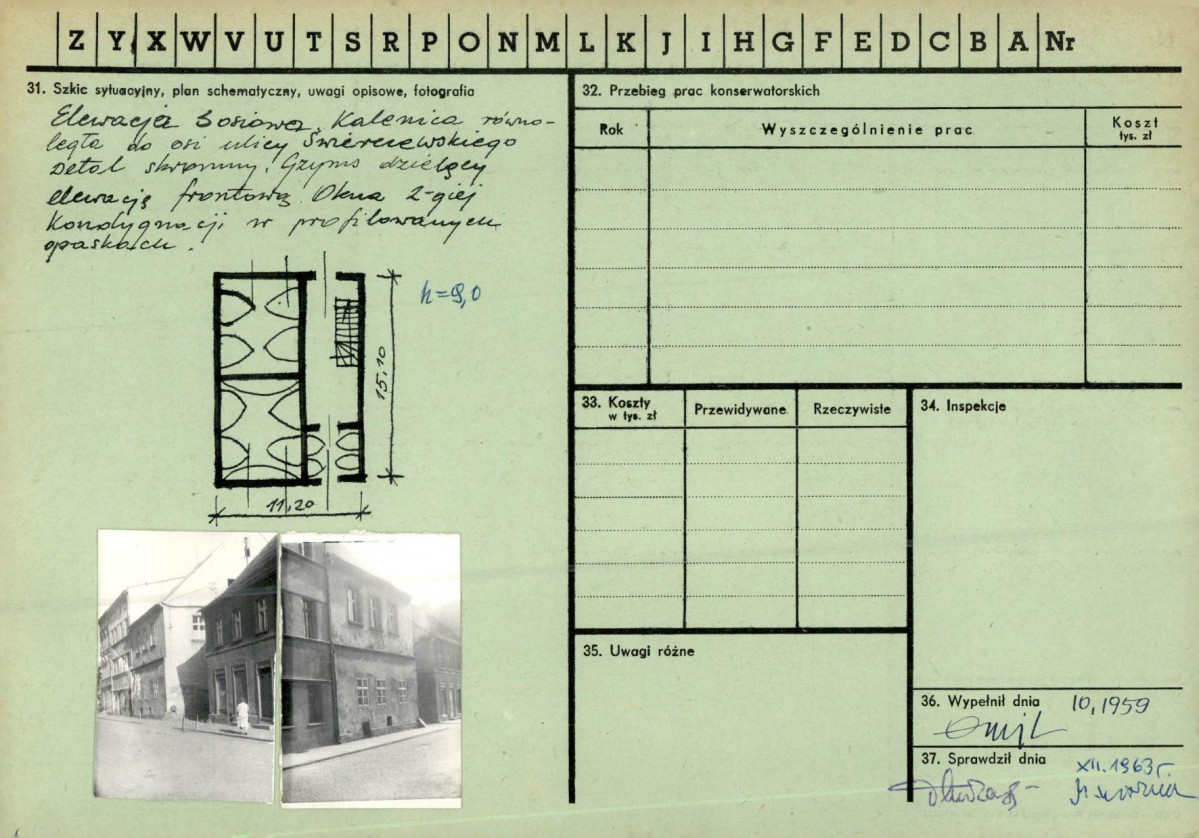 Z Y X W V U T S R P O N M L K J I H G F E D C B A Nr
31. Szkic sytuacyjny, plan schematyczny, uwagi opisowe, fotografia
Elewacja 3 osiowa. Kalenica równo-
legła do osi ulicy Świerczewskiego
Detal skromny. Gzyms dzielący
elewację frontową. Okna 2-giej
Kondygnacji w profilowanych
opaskach.
h=9,0
15,10
11,20
32. Przebieg prac konserwatorskich
Rok
Wyszczególnienie prac
Koszt
tys. zł
33. Koszty
w tys. zł
Przewidywane
Rzeczywiste
34. Inspekcje
35. Uwagi różne
36. Wypełnił dnia 10,1959
37. Sprawdził dnia
XII.1963r.